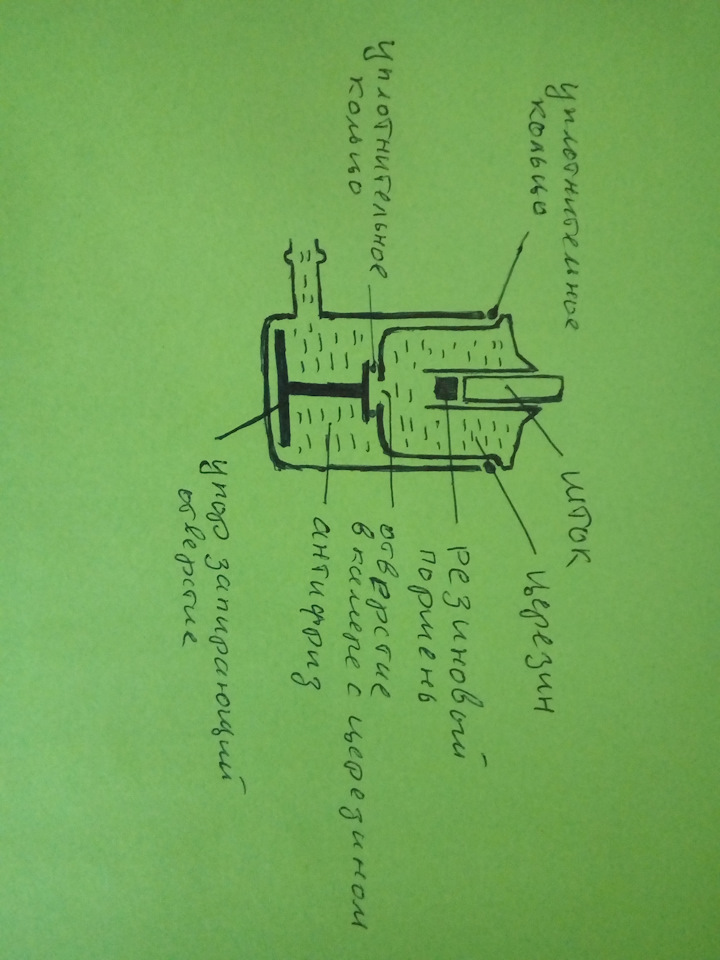 уплотнительное
кольцо
уплотнительное
кольцо
шток
церезин
резиновый
поршень
отверстие
в камере с церезином
антифриз
упор запирающий
отверстие